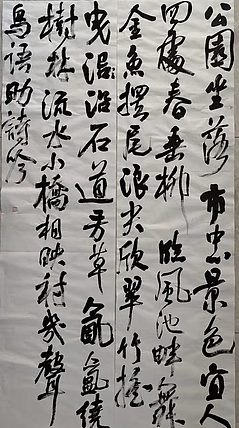 公園坐落市忠景色宜人
四處春垂柳臨風池畔舞
金魚擺尾浪尖欣翠竹搖
曳沿石道芳草氤氳繞
樹林流水小橋相映衬幾聲
鳥語助詩吟